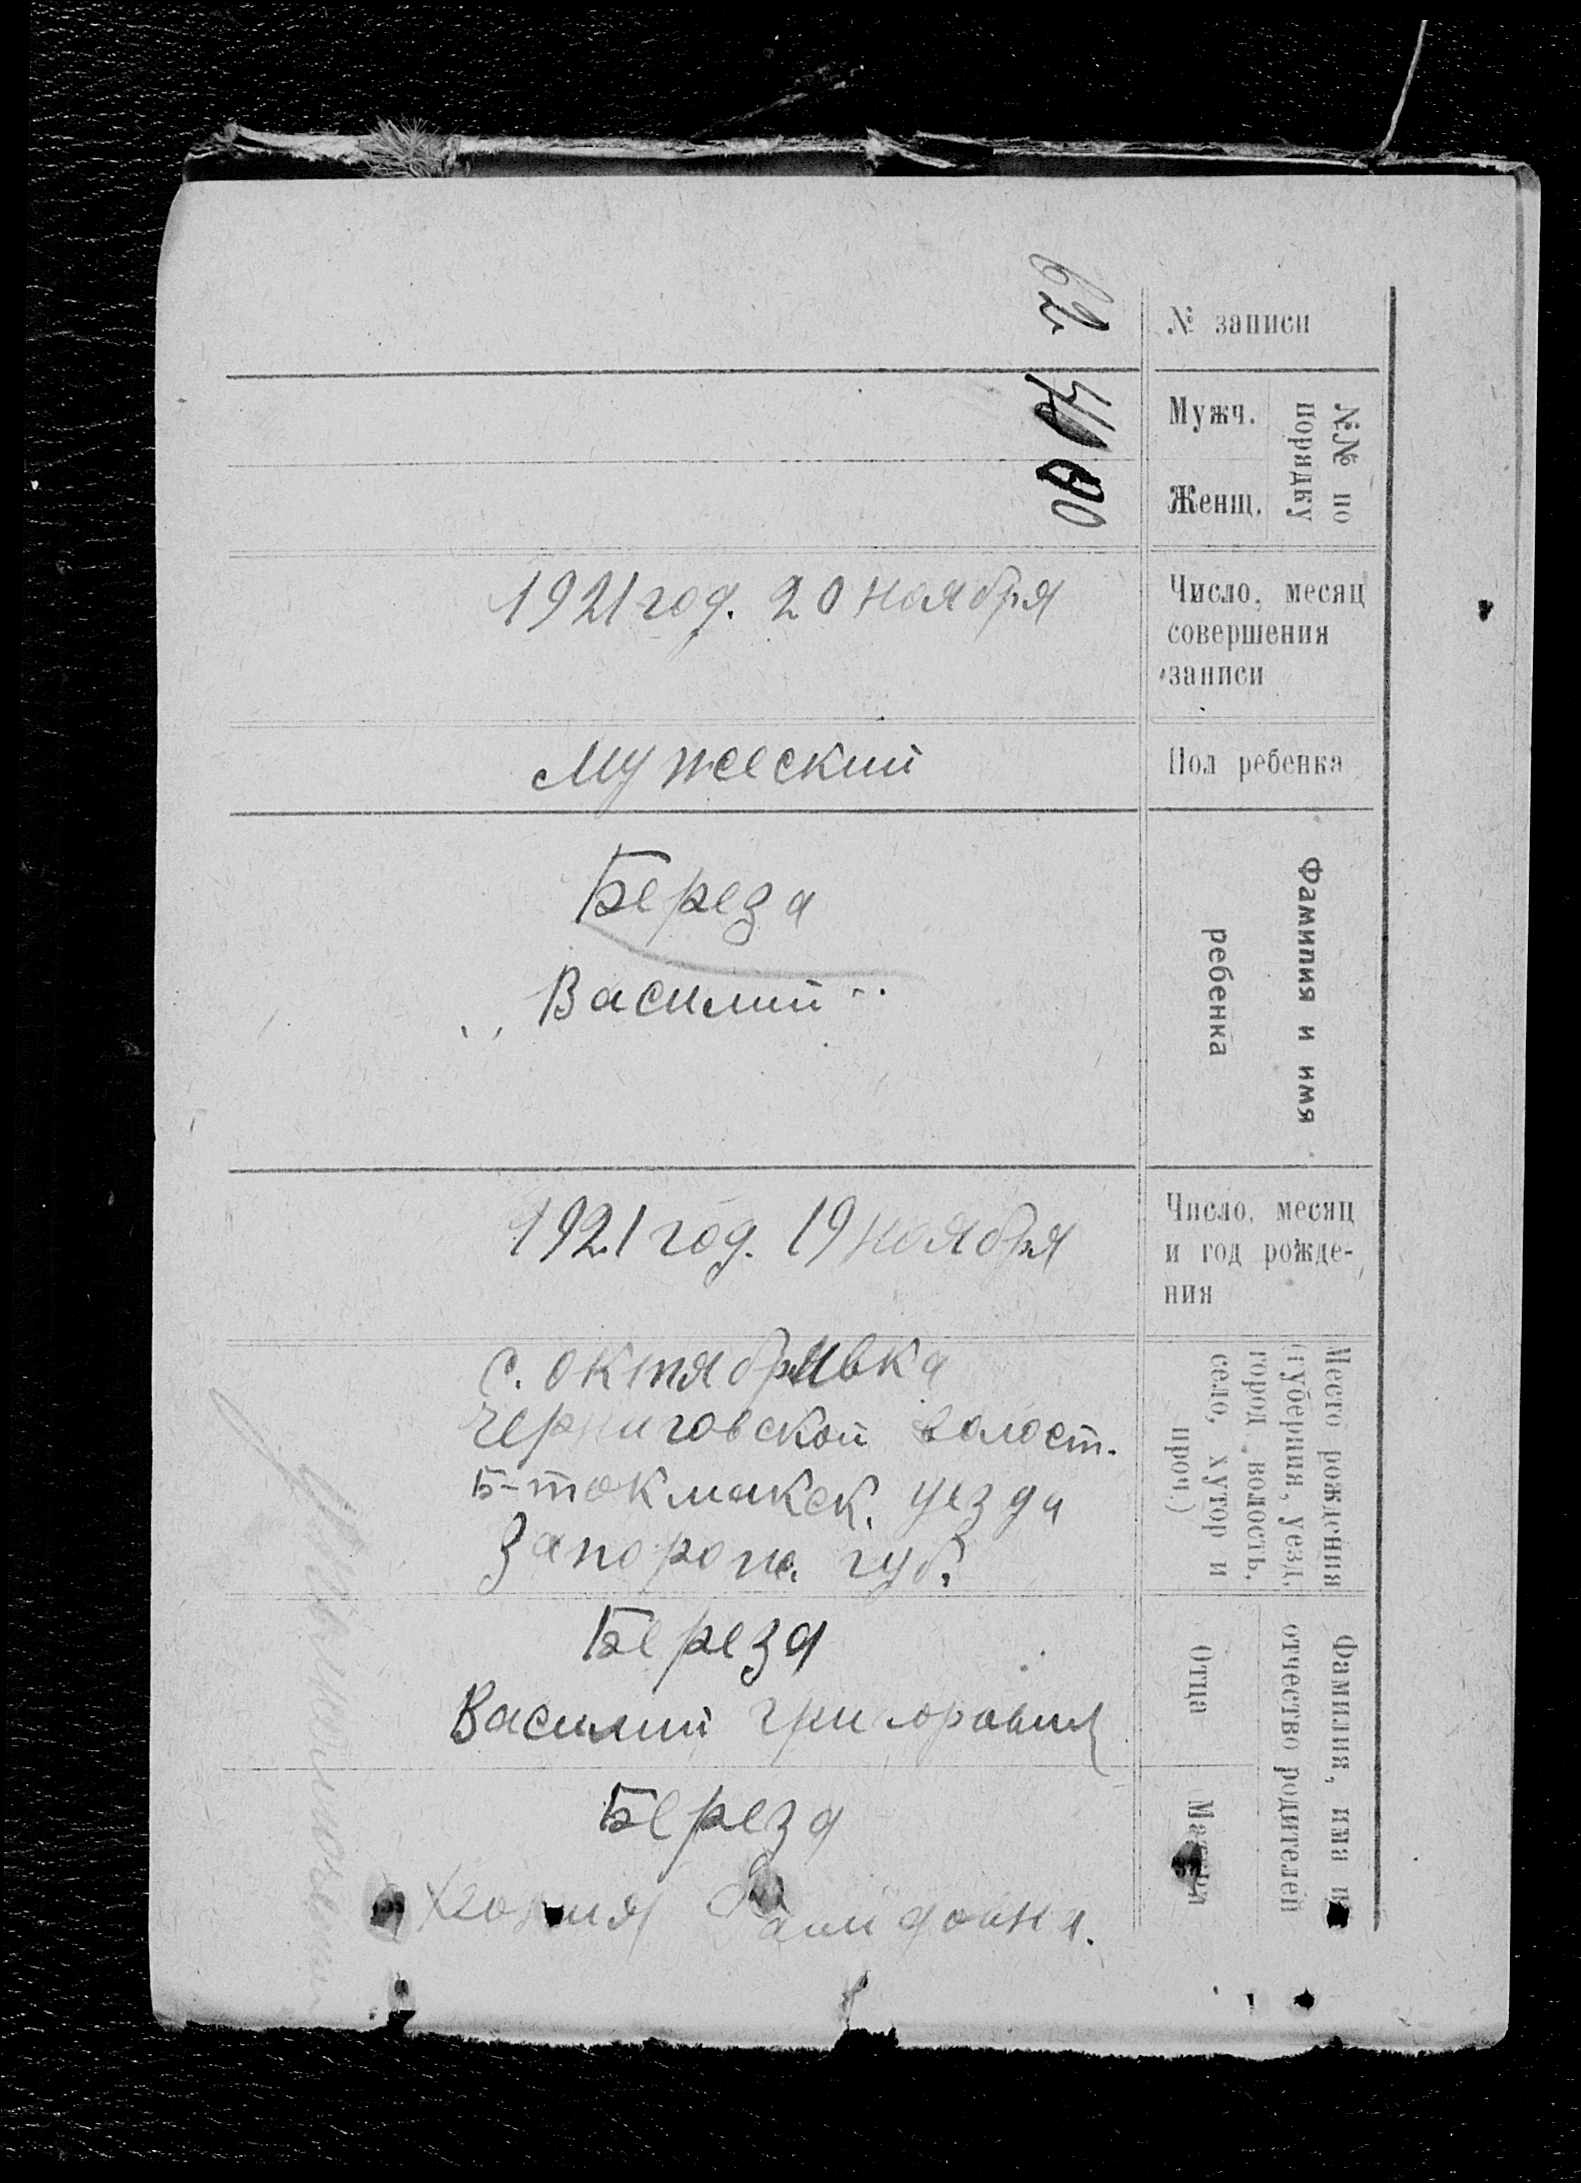 № записи
62
№№ по порядку
Мужч.
Женщ.
Число, месяц
совершения
записи
1921 год. 20 ноября
Пол ребенка
Мужеский
Фамилия и имя
ребенка
Береза
„ Василий "
Число, месяц
и год рожде-
ния
1921 год. 19 ноября
Место рождения
(губерния, уезд,
город, волость,
село, хутор и
проч.)
с. Октябривка
Черниговской волост.
Б-Токмакск. уезда
Запорож. губ.
Фамилия, имя и
отчество родителей
Отца
Береза
Василий Григорович
Матери
Береза